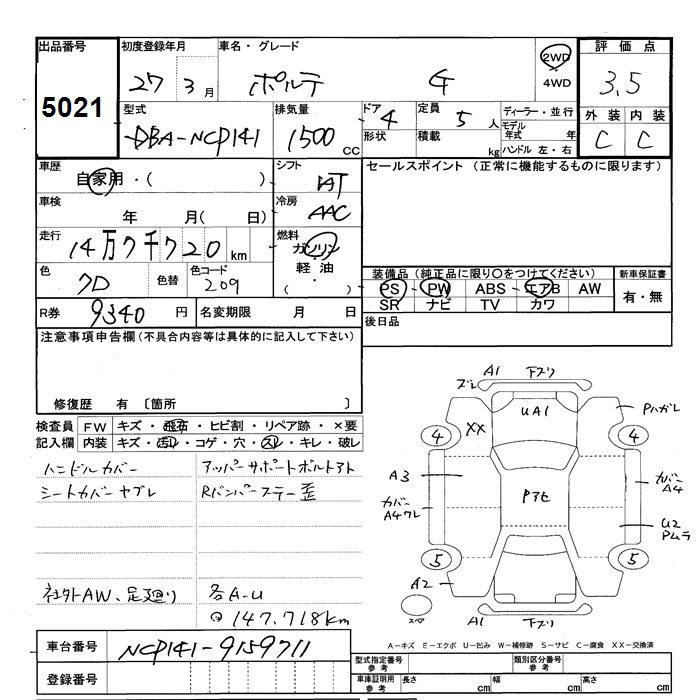 出品番号 初度登録年月 車名・グレード 2WD 評価点
5021 27 3月 ポルテ G 4WD 3.5
型式 排気量 ドア 4 定員 5人 ディーラー・並行 外装 内装
DBA-NCP141 1500 CC 形状 積載 kg モデル年式 年 C C
ハンドル 左・右
車歴 自家用・( ) シフト AT セールスポイント (正常に機能するものに限ります)
車検 年 月( 日) 冷房 AAC
走行 14万7千720 km 燃料 ガソリン
軽油
・
色 クロ 色替 色コード 209
装備品 (純正品に限り○をつけてください) 新車保証書
PS PW ABS エアB AW 有・無
SR ナビ TV カワ
R券 9340 円 名変期限 月 日 後日品
注意事項申告欄 (不具合内容等は具体的に記入して下さい)
修復歴 有 〔箇所 〕
検査員 FW キズ・飛石・ヒビ割・リペア跡・×要
記入欄 内装 キズ・汚れ・コゲ・穴・スレ・キレ・破レ
ハンドルカバー アッパーサポートボルトアト
シートカバーヤブレ Rバンパーステー歪
社外AW、足廻り 各A-U
147.718km
A1 下スリ
ズレ
UA1 Pハガレ
4 XX 4
A3 Pアセ カバーA4
カバーA4ワレ U2
Pムラ
5 5
A2
スペア A1 下スリ
A-キズ E-エクボ U-凹み W-補修跡 S-サビ C-腐食 XX-交換済
車台番号 NCP141-9159711
登録番号
型式指定番号 参考 類別区分番号 参考
車庫証明用 参考 長さ cm 幅 cm 高さ cm